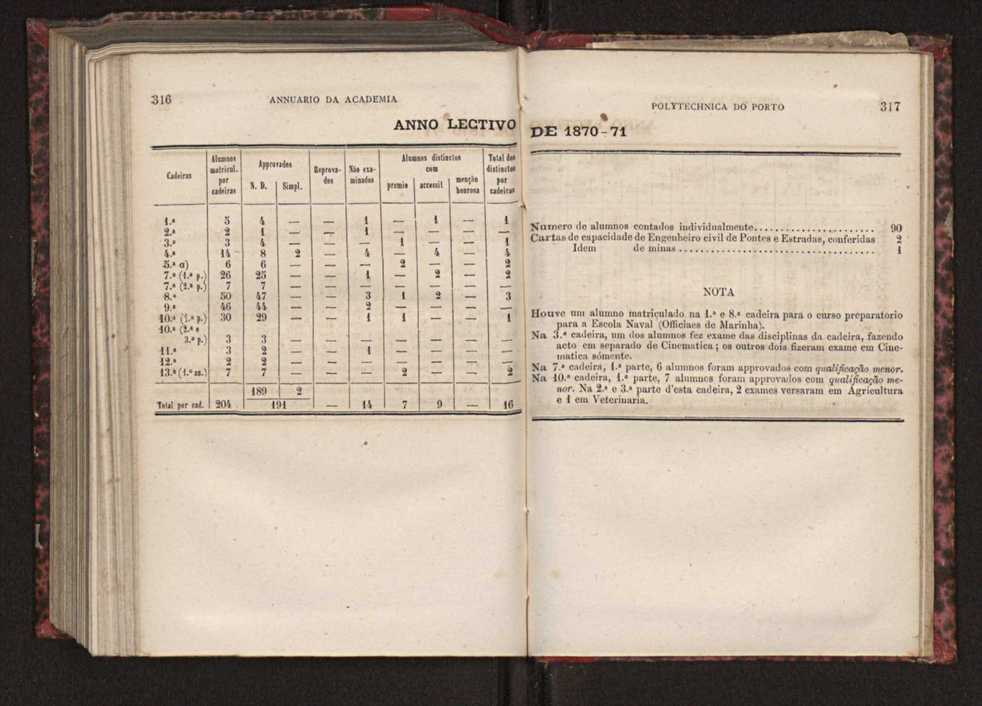 316 ANNUARIO DA ACADEMIA
ANNO LECTIVO
Cadeiras | Alumnos matricul. por cadeiras | Approvados N. D. | Simpl. | Reprovados | Não examinados | Alumnos distinctos com premio | accessit | menção honrosa | Total dos distinctos por cadeiras
1.ª 5 4 — — 1 — 1 — 1
2.ª 2 1 — — 1 — — — —
3.ª 3 4 — — — 1 — — 1
4.ª 14 8 2 — 4 — 4 — 4
5.ª a) 6 6 — — — 2 — — 2
7.ª (1.ª p.) 26 25 — — 1 — 2 — 2
7.ª (2.ª p.) 7 7 — — — — — — —
8.ª 50 47 — — 3 1 2 — 3
9.ª 46 44 — — 2 — — — —
10.ª (1.ª p.) 30 29 — — 1 1 — — 1
10.ª (2.ª e
3.ª p.) 3 3 — — — — — — —
11.ª 3 2 — — 1 — — — —
12.ª 2 2 — — — — — — —
13.ª (1.º an.) 7 7 — — — 2 — — 2
189 2
Total por cad. 204 191 — 14 7 9 — 16
POLYTECHNICA DO PORTO 317
DE 1870-71
Numero de alumnos contados individualmente...................... 90
Cartas de capacidade de Engenheiro civil de Pontes e Estradas, conferidas 2
Idem de minas .................................... 1
NOTA
Houve um alumno matriculado na 1.ª e 8.ª cadeira para o curso preparatorio
para a Escola Naval (Officiaes de Marinha).
Na 3.ª cadeira, um dos alumnos fez exame das disciplinas da cadeira, fazendo
acto em separado de Cinematica; os outros dois fizeram exame em Cine-
matica sómente.
Na 7.ª cadeira, 1.ª parte, 6 alumnos foram approvados com qualificação menor.
Na 10.ª cadeira, 1.ª parte, 7 alumnos foram approvados com qualificação me-
nor. Na 2.ª e 3.ª parte d'esta cadeira, 2 exames versaram em Agricultura
e 1 em Veterinaria.